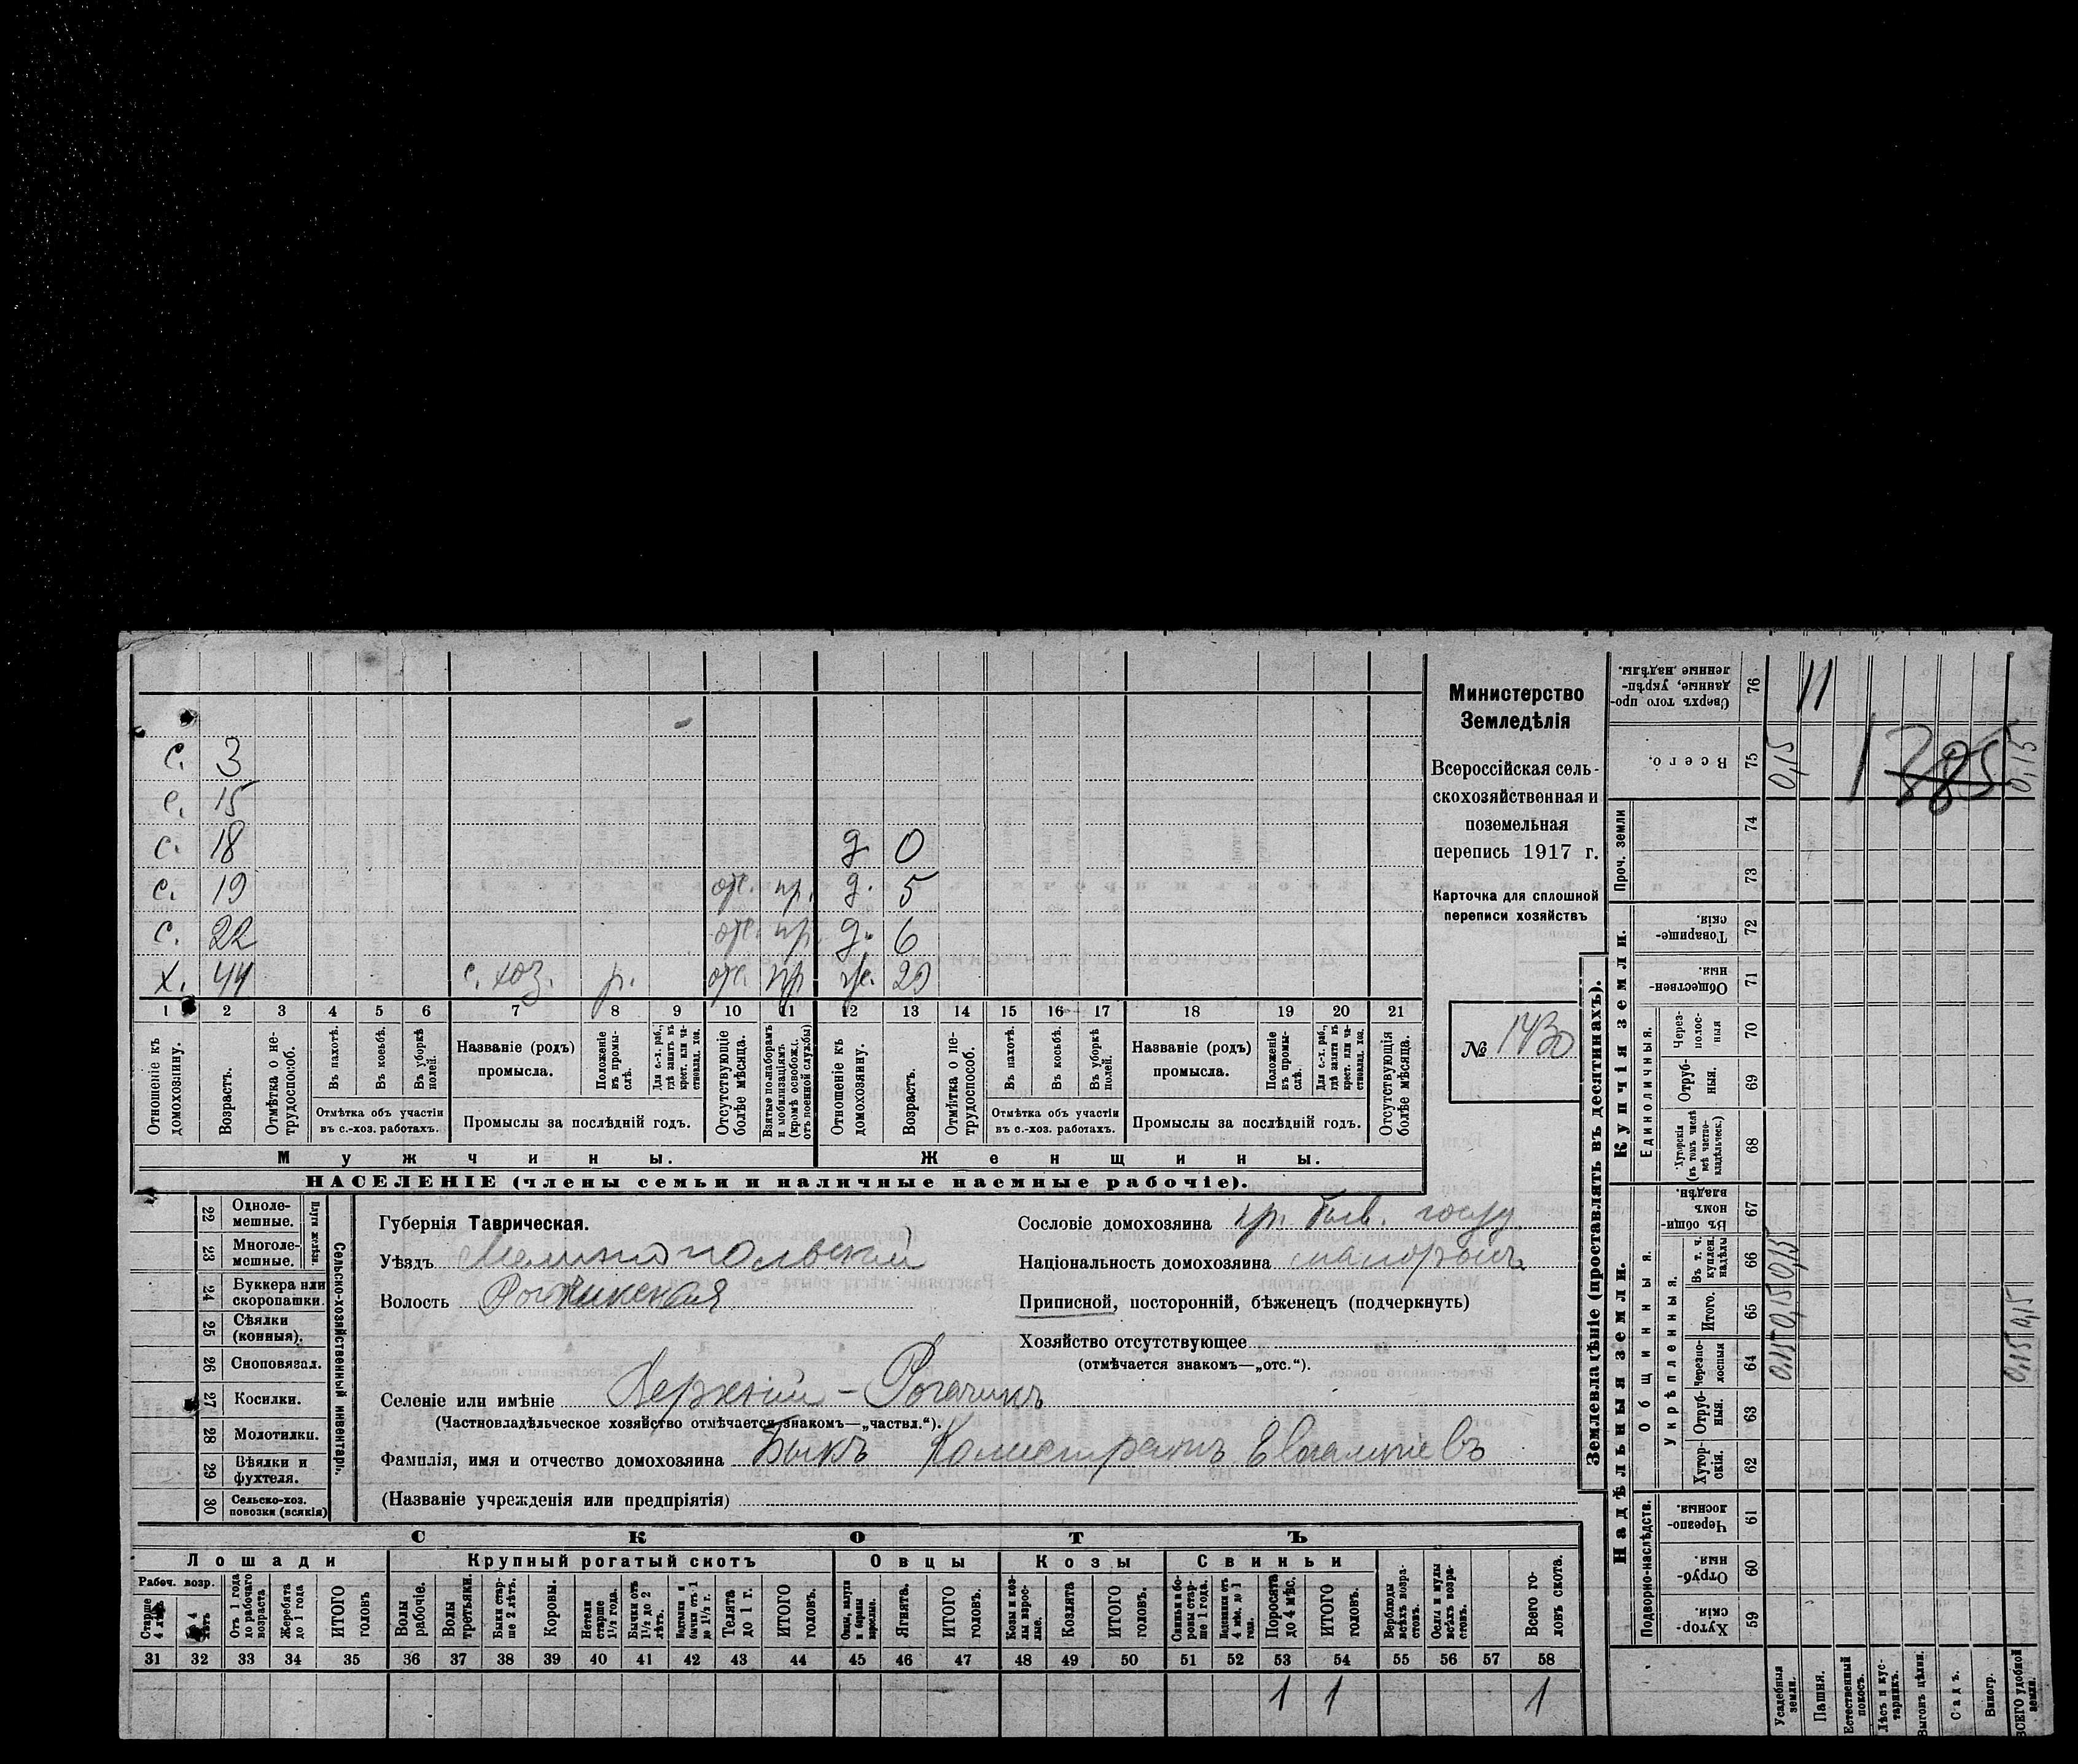 с. 3
с. 15
с. 18 д. 0
с. 19 отс. пр. д. 5
с. 22 отс. пр. д. 6
х. 44 с. хоз. р. отс. пр. ж. 29
1 2 3 4 5 6 7 8 9 10 11 12 13 14 15 16 17 18 19 20 21
Отношеніе къ домохозяину.
Возрастъ.
Отмѣтка о нетрудоспособ.
Въ пахотѣ.
Въ косьбѣ.
Въ уборкѣ полей.
Отмѣтка объ участіи
въ с.-хоз. работахъ.
Названіе (родъ)
промысла.
Положеніе въ промыслѣ.
Для с.-х. раб., гдѣ занятъ въ крест. или частновлад. хоз.
Промыслы за послѣдній годъ.
Отсутствующіе болѣе мѣсяца.
Взятые по наборамъ и мобилизаціямъ (кромѣ освобожд. отъ военной службы)
Отношеніе къ домохозяину.
Возрастъ.
Отмѣтка о нетрудоспособ.
Въ пахотѣ.
Въ косьбѣ.
Въ уборкѣ полей.
Отмѣтка объ участіи
въ с.-хоз. работахъ.
Названіе (родъ)
промысла.
Положеніе въ промыслѣ.
Для с.-х. раб., гдѣ занята въ крест. или частновлад. хоз.
Промыслы за послѣдній годъ.
Отсутствующія болѣе мѣсяца.
Мужчины.
Женщины.
НАСЕЛЕНІЕ (члены семьи и наличные наемные рабочіе).
Министерство
Земледѣлія
Всероссійская сель-
скохозяйственная и
поземельная
перепись 1917 г.
Карточка для сплошной
переписи хозяйствъ
№ 1430
22 Однолемешные.
23 Многолемешные.
Плуги желѣзн.
24 Буккера или скоропашки.
25 Сѣялки (конныя).
26 Сноповязал.
27 Косилки.
28 Молотилки.
29 Вѣялки и фухтеля.
30 Сельско-хоз. повозки (всякія)
Сельско-хозяйственный инвентарь.
Губернія Таврическая.
Уѣздъ Мелитопольский
Волость Рогачикская
Сословіе домохозяина кр. быв. госуд.
Національность домохозяина малороссъ
Приписной, посторонній, бѣженецъ (подчеркнуть)
Хозяйство отсутствующее
(отмѣчается знакомъ—„отс.“).
Селеніе или имѣніе Верхній-Рогачикъ
(Частновладѣльческое хозяйство отмѣчается знакомъ—„частвл.“).
Фамилія, имя и отчество домохозяина Быкъ Калистратъ Евлампіевъ
(Названіе учрежденія или предпріятія)
СКОТЪ
Лошади
Крупный рогатый скотъ
Овцы
Козы
Свиньи
Рабоч. возр.
Старше 4 лѣтъ
До 4 лѣтъ
Отъ 1 года до рабочаго возраста
Жеребята до 1 года
ИТОГО головъ
Волы рабочіе.
Волы третьяки.
Быки старше 2 лѣтъ.
Коровы.
Нетели старше 1½ года.
Бычки отъ 1½ до 2 лѣтъ.
Телята до 1 г.
ИТОГО головъ.
Ягнята.
ИТОГО головъ.
Козы и козлы взрослые.
Козлята
ИТОГО головъ.
Свиньи и боровы старше 1 года.
Поросята до 4 мѣс.
ИТОГО головъ.
Верблюды всѣхъ возрастовъ.
Ослы и мулы всѣхъ возрастовъ.
Всего головъ скота.
31 32 33 34 35 36 37 38 39 40 41 42 43 44 45 46 47 48 49 50 51 52 53 54 55 56 57 58
1 1 1
Землевладѣніе (проставлять въ десятинахъ).
Надѣльныя земли.
Купчія земли.
Проч. земли
Подворно-наслѣдств.
Общинныя.
Укрѣпленныя.
Единоличныя.
Хуторскія 59
Отрубныя. 60
Черезполосныя 61
Хуторскія. 62
Отрубныя. 63
Черезполосныя 64
Итого. 65
Въ т. ч. куплен. надѣлы 66
Въ общинномъ владѣн. 67
Хуторскія (въ томъ числѣ всѣ частновладѣльческ.) 68
Отрубныя. 69
Черезполосныя 70
Общественныя 71
Товарищескія. 72
73
74
Всего. 75
Сверхъ того проданные, укрѣпленные надѣлы. 76
Усадебныя земли.
Пашня.
Естественный покосъ.
Лѣсъ и кустарникъ.
Выгонъ цѣлин.
Садъ.
Виногр.
ВСЕГО удобной земли.
0,15 0,15 0,15
0,15
11
0,15 0,15
0,15